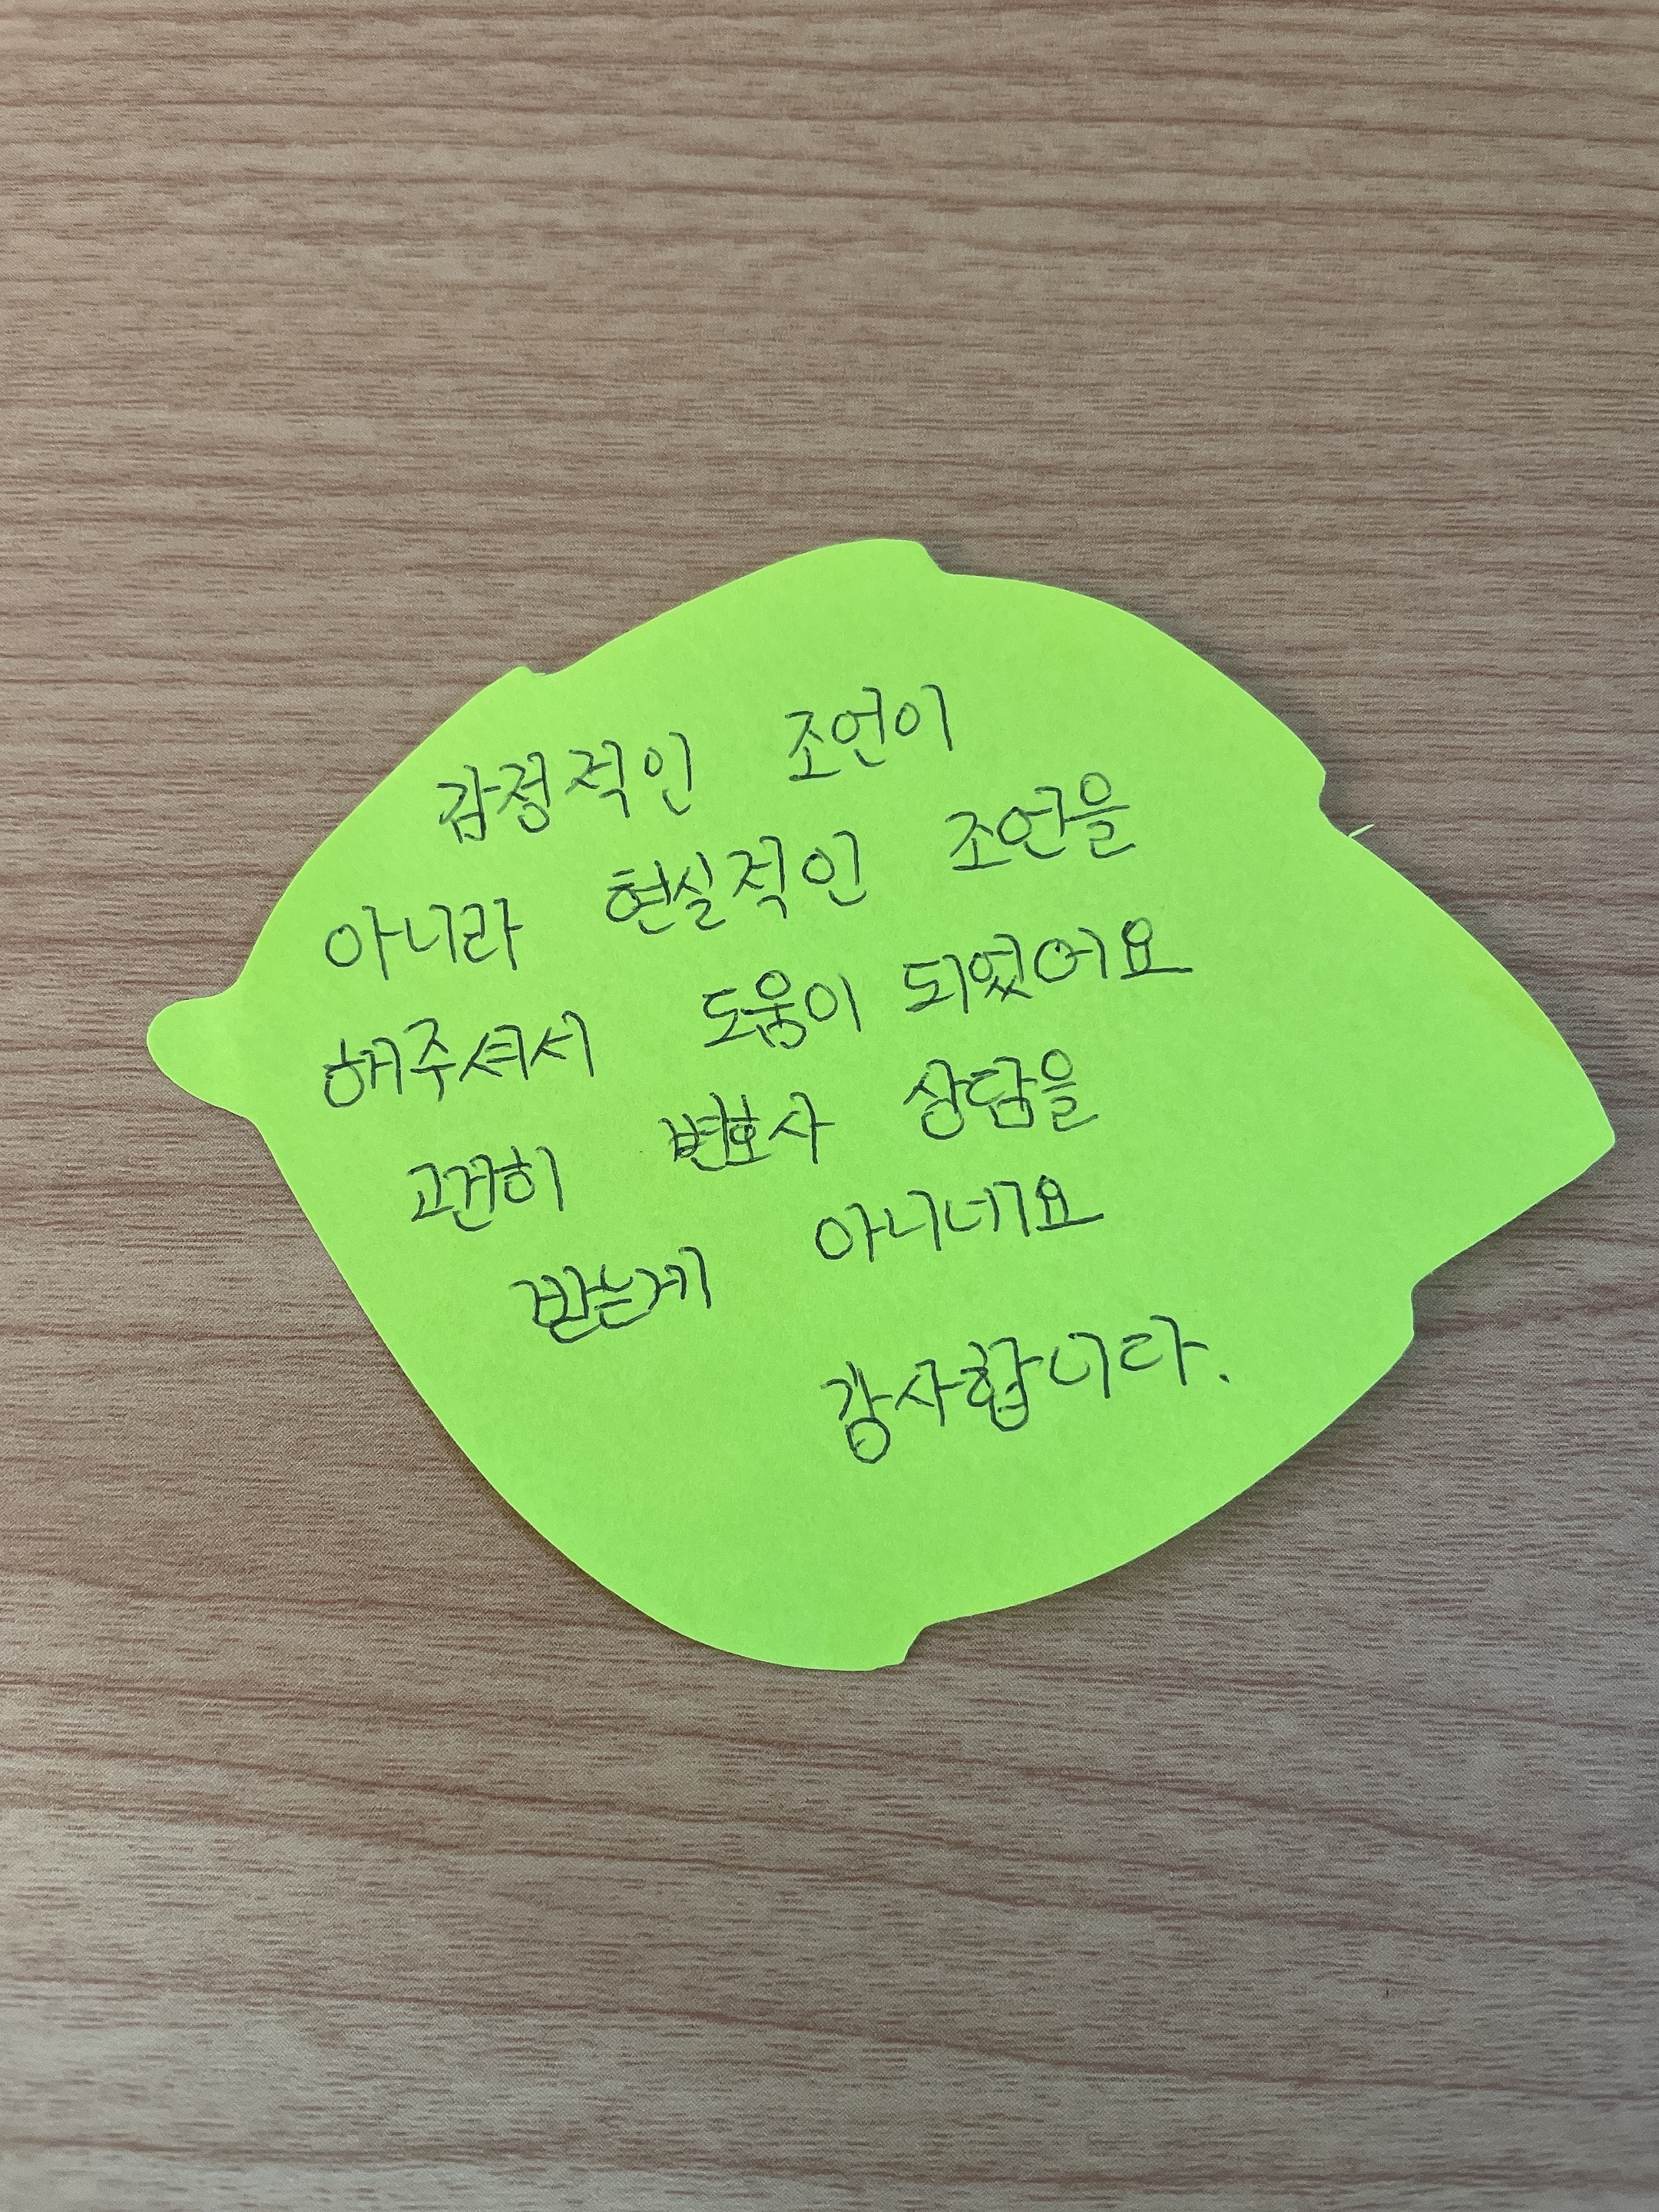 감정적인 조언이
아니라 현실적인 조언을
해주셔서 도움이 되었어요
고견히 변호사 상담을
받는게 아니네요
강사합니다.